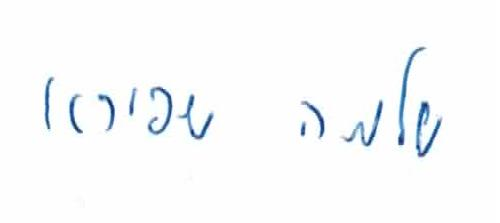 שלמה שפירא